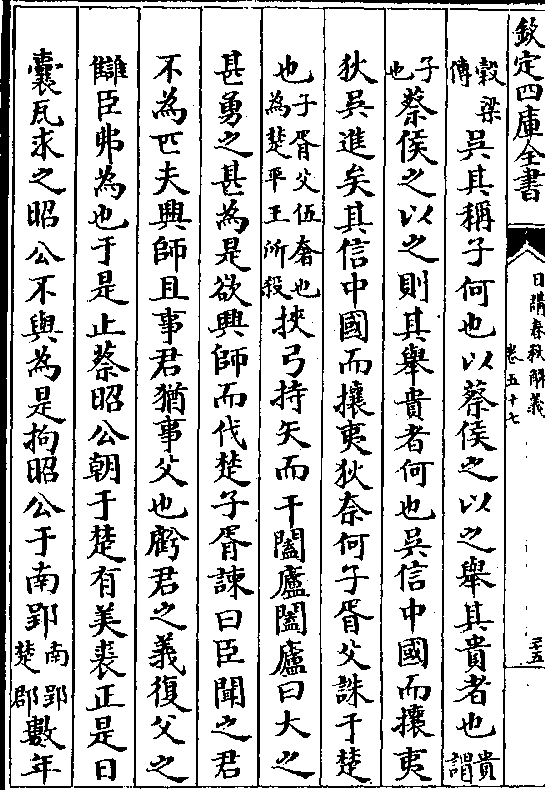 欽定四庫全書
日講春秋解義
卷五十七
二十五
穀梁傳吳其稱子何也以蔡侯之以之舉其貴者也貴謂
子也蔡侯之以之則其舉貴者何也吳信中國而攘夷
狄吳進矣其信中國而攘夷狄奈何子胥父誅于楚
也子胥父伍奢也為楚平王所殺挾弓持矢而干闔廬闔廬曰大之
甚勇之甚為是欲興師而伐楚子胥諫曰臣聞之君
不為匹夫興師且事君猶事父也虧君之義復父之
讎臣弗為也于是止蔡昭公朝于楚有美裘正是日
囊瓦求之昭公不與為是拘昭公于南郢南郢楚郡數年